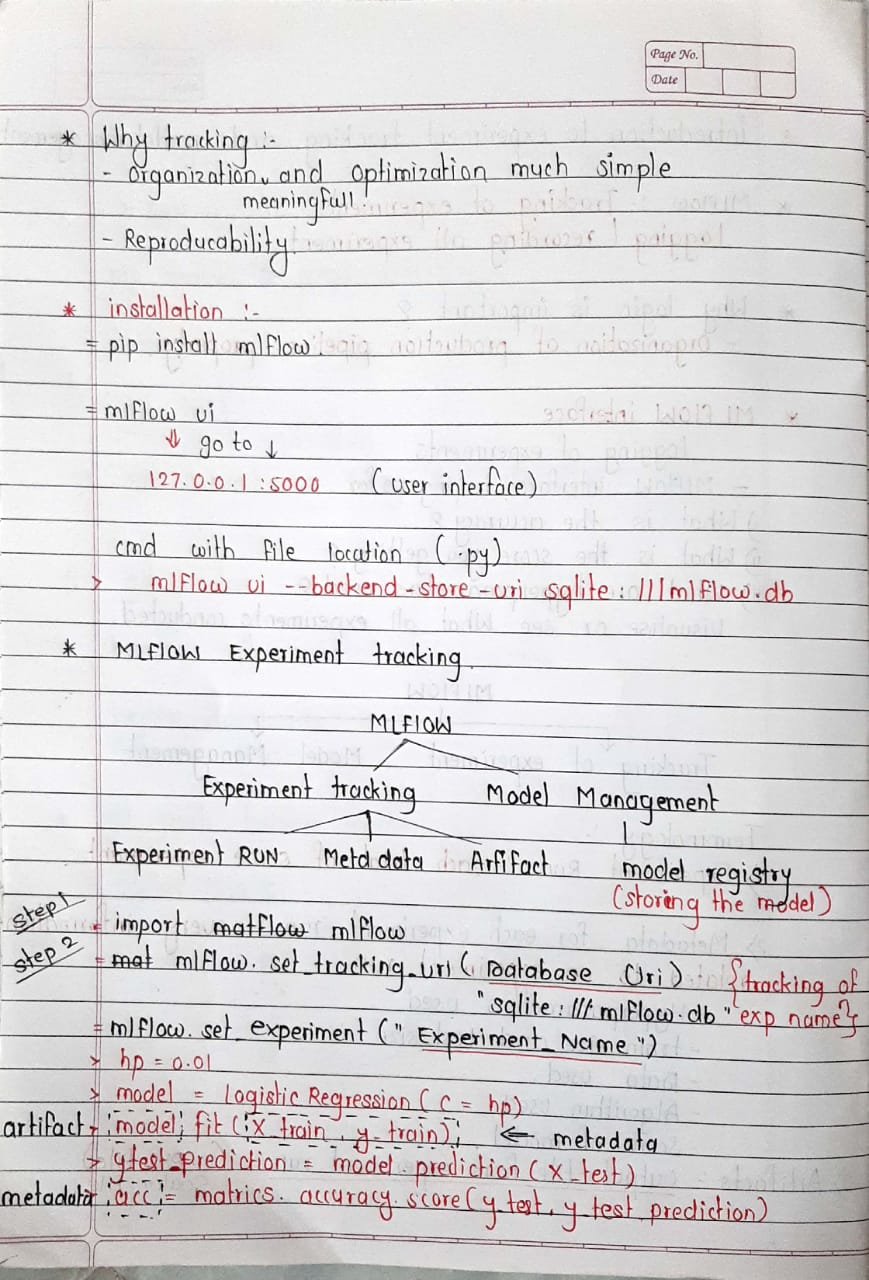 Page No.
Date
* Why tracking :-
- Organization, and optimization much simple
meaningfull.
- Reproducability.
* installation :-
= pip install mlflow.
= mlflow ui
⇓ go to ↓
127.0.0.1 :5000 (user interface)
cmd with file location (.py)
> mlflow ui --backend-store-uri sqlite:///mlflow.db
* MLflow Experiment tracking.
MLFlOW
Experiment tracking Model Management
Experiment RUN Metd data Artifact model registry
(storing the model)
step1 = import matflow mlflow
step 2 = mat mlflow. set_tracking_uri ( Database Uri) {tracking of
"sqlite:///mlflow.db" exp name}
= mlflow. set_experiment (" Experiment_Name")
> hp = 0.01
> model = Logistic Regression ( C = hp)
artifact > model; fit ( x_train, y_train); ← metadata
> ytest_prediction = model. prediction ( x_test)
metadata acc = matrics. accuracy. score( y_test, y test prediction)